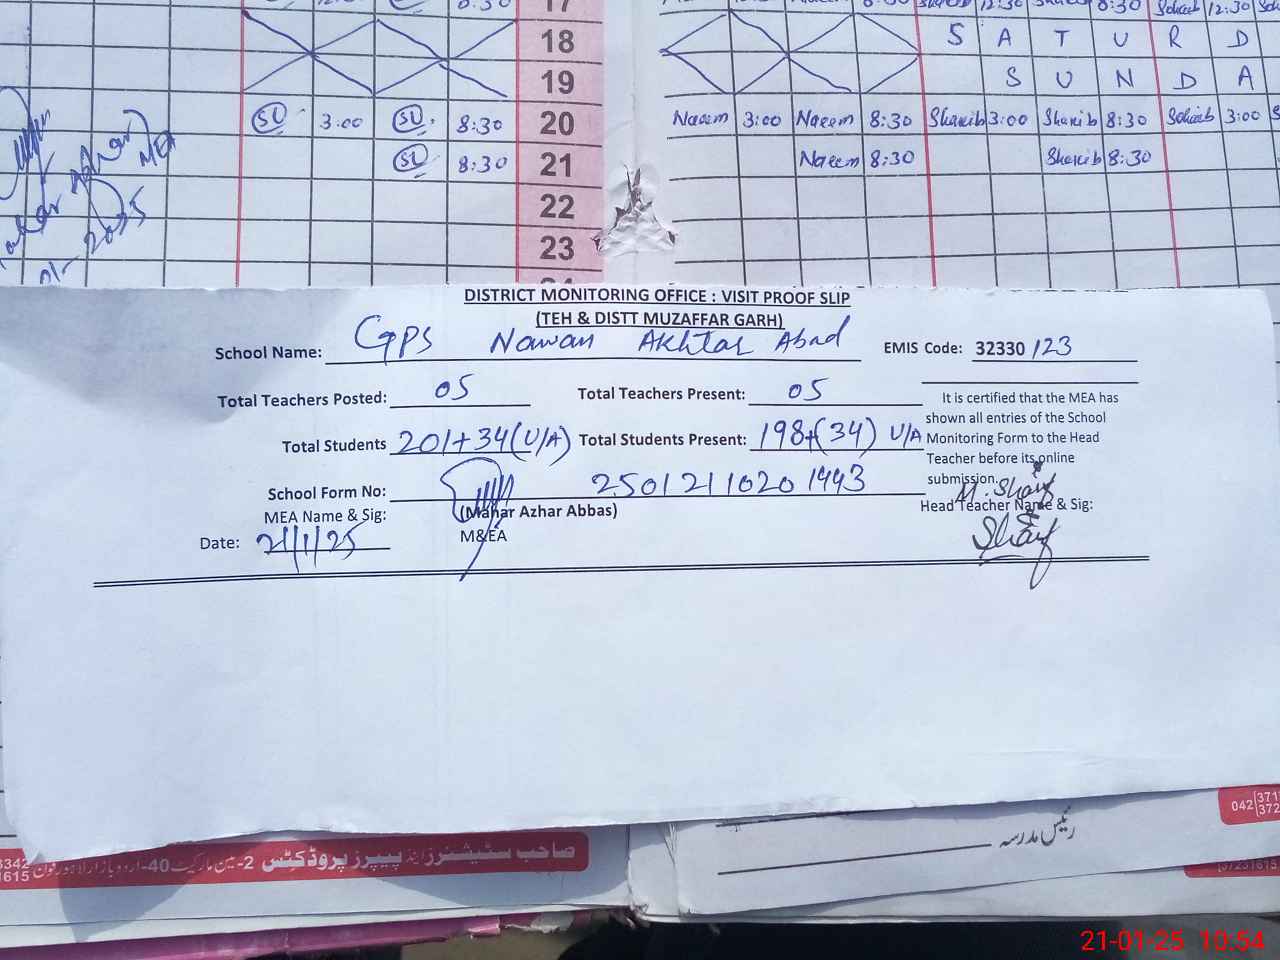 8:30 17 Naeem 8:30 12:30 8:30 Soheib 12:30
18 S A T U R D
19 S U N D A
SU 3:00 SU 8:30 20 Naeem 3:00 Naeem 8:30 Shakib 3:00 Shakib 8:30 Soheib 3:00
SU 8:30 21 Naeem 8:30 Shakib 8:30
22
23
Azhar
MEA
2025
DISTRICT MONITORING OFFICE : VISIT PROOF SLIP
(TEH & DISTT MUZAFFAR GARH)
School Name: GPS Nawan Akhtar Abad EMIS Code: 32330/123
Total Teachers Posted: 05 Total Teachers Present: 05
Total Students 201+34(U/A) Total Students Present: 198+(34) U/A
It is certified that the MEA has
shown all entries of the School
Monitoring Form to the Head
Teacher before its online
submission.
School Form No: 25012110201443
MEA Name & Sig: (Mahar Azhar Abbas)
M&EA
M. Sharif
Head Teacher Name & Sig:
Sharif
Date: 21/1/25
رئیس مدرسہ
صاحب سٹیشنرز اینڈ پیپرز پروڈکٹس 2-مین مارکیٹ 40-اردو بازار لاہور فون
042
21-01-25 10:54